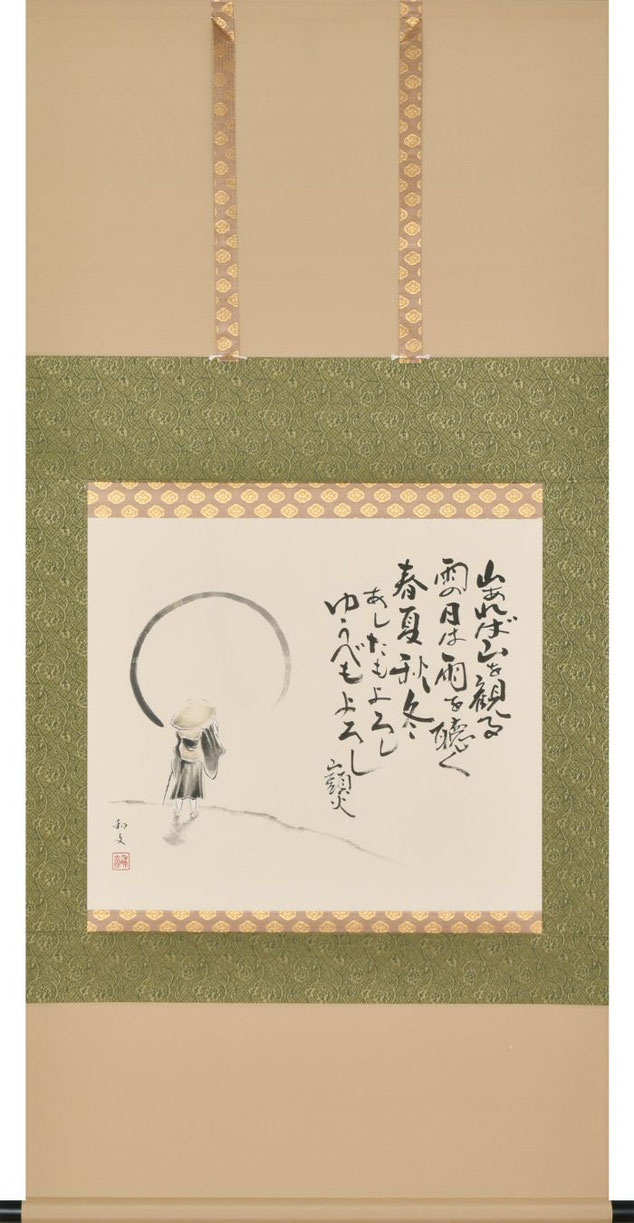 山あれば山を観る
雨の日は雨を聴く
春夏秋冬
あしたもよろし
ゆうべもよろし
山頭火
和文